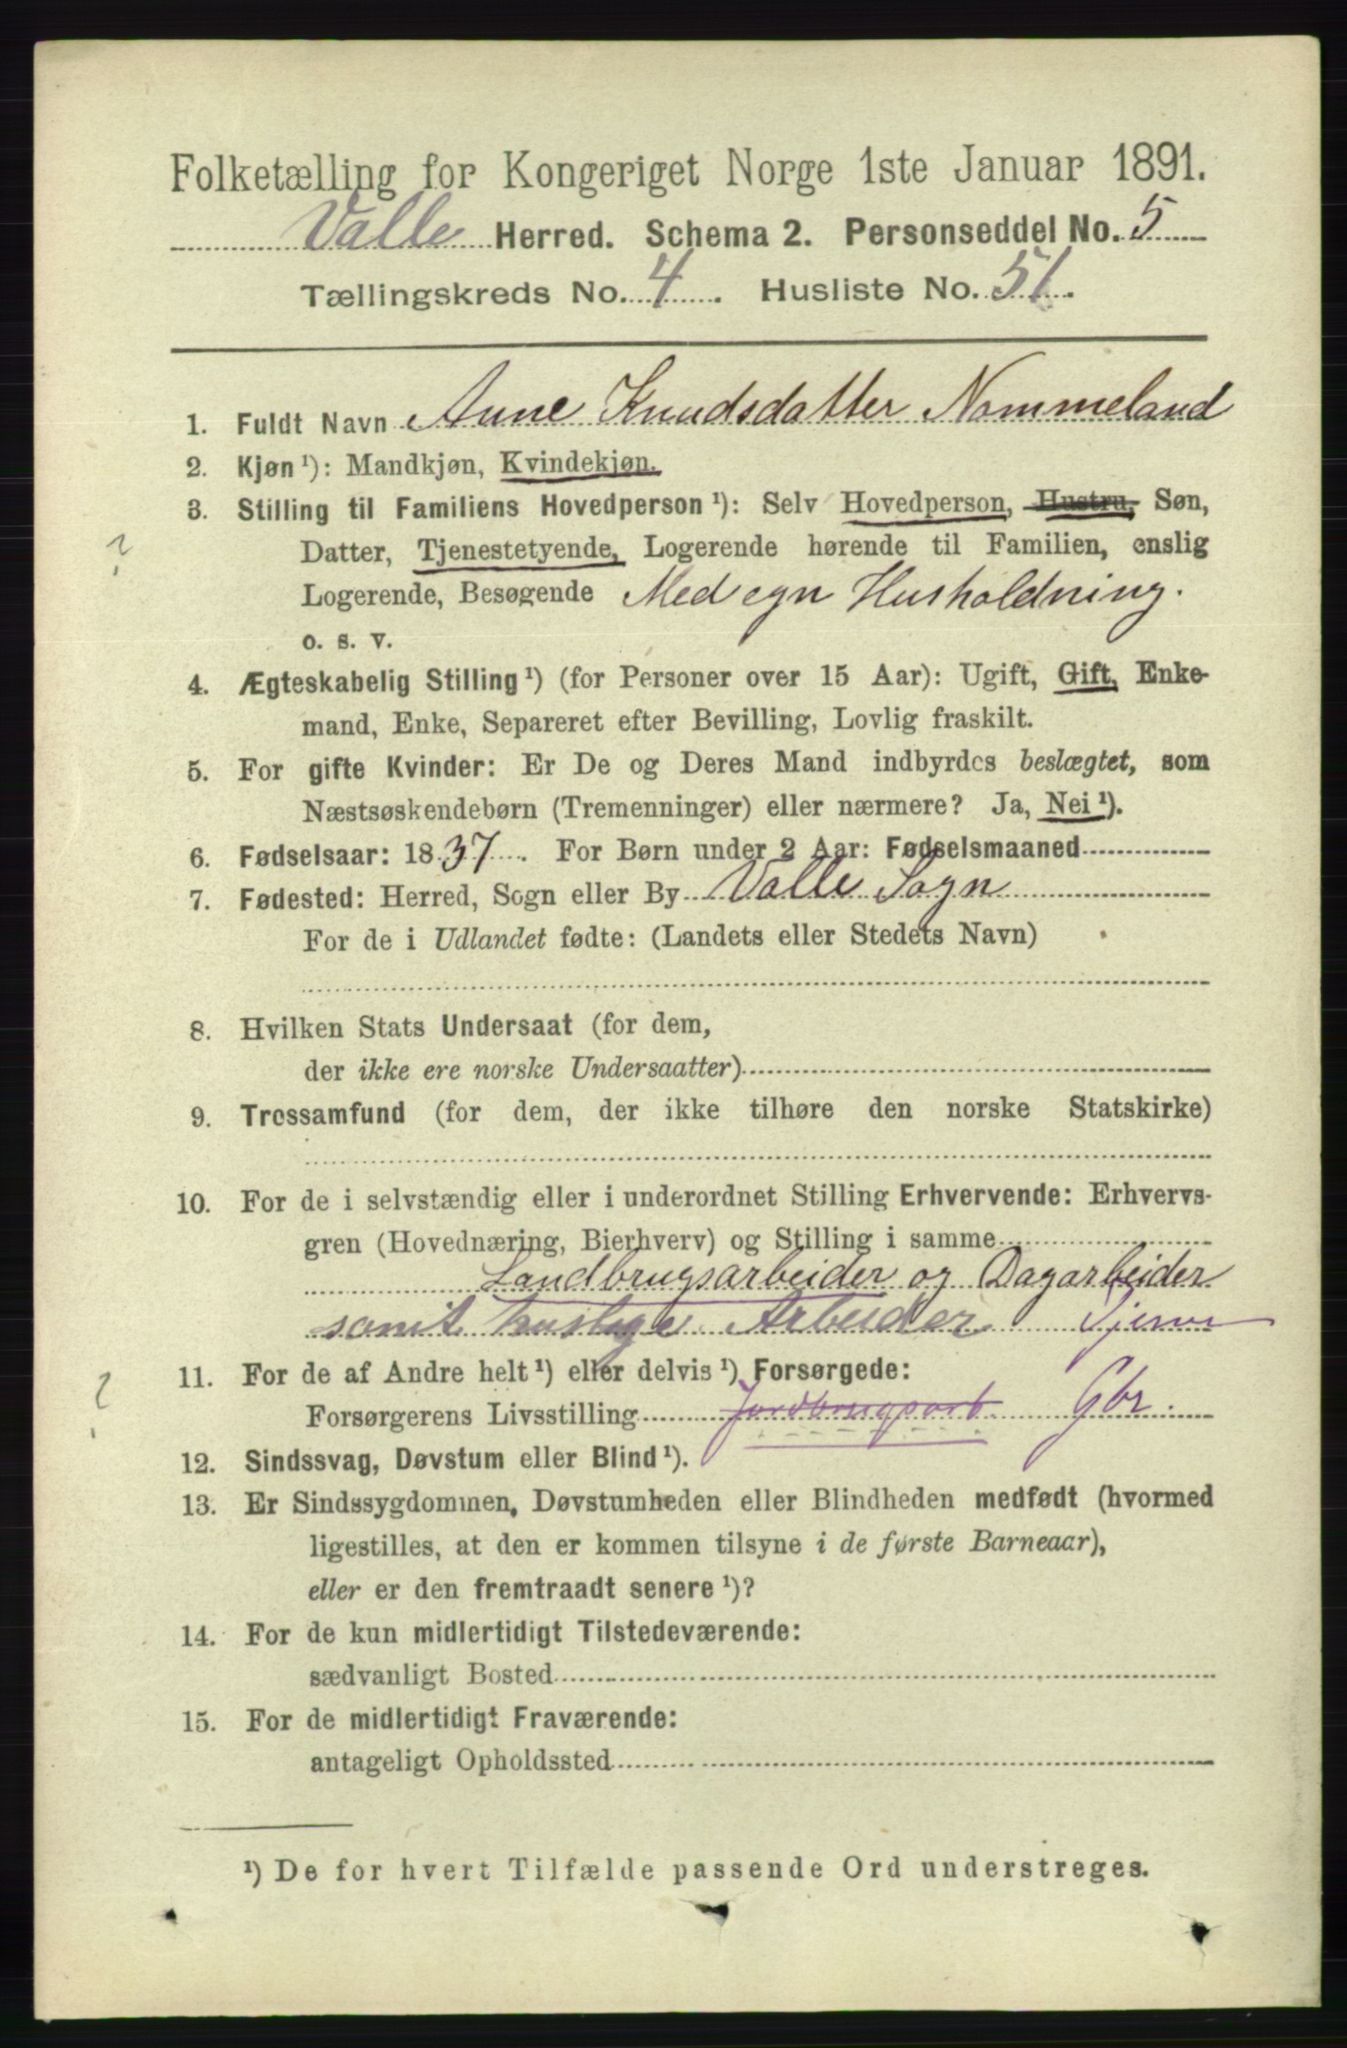 Folketælling for Kongeriget Norge 1ste Januar 1891.
Valle Herred. Schema 2. Personseddel No. 5
Tællingskreds No. 4. Husliste No. 51.
1. Fuldt Navn Anne Knudsdatter Nommeland
2. Kjøn ¹): Mandkjøn, Kvindekjøn.
3. Stilling til Familiens Hovedperson ¹): Selv Hovedperson, Hustru, Søn,
? Datter, Tjenestetyende, Logerende hørende til Familien, enslig
Logerende, Besøgende Med egn Husholdning.
o. s. v.
4. Ægteskabelig Stilling ¹) (for Personer over 15 Aar): Ugift, Gift, Enke-
mand, Enke, Separeret efter Bevilling, Lovlig fraskilt.
5. For gifte Kvinder: Er De og Deres Mand indbyrdes beslægtet, som
Næstsøskendebørn (Tremenninger) eller nærmere? Ja, Nei ¹).
6. Fødselsaar: 1837. For Børn under 2 Aar: Fødselsmaaned
7. Fødested: Herred, Sogn eller By Valle Sogn
For de i Udlandet fødte: (Landets eller Stedets Navn)
8. Hvilken Stats Undersaat (for dem,
der ikke ere norske Undersaatter)
9. Trossamfund (for dem, der ikke tilhøre den norske Statskirke)
10. For de i selvstændig eller i underordnet Stilling Erhvervende: Erhvervs-
gren (Hovednæring, Bierhverv) og Stilling i samme
Landbrugsarbeider og Dagarbeider
samt huslige Arbeider
11. For de af Andre helt ¹) eller delvis ¹) Forsørgede:
? Forsørgerens Livsstilling Jordbrugsarb. Gbr.
12. Sindssvag, Døvstum eller Blind ¹).
13. Er Sindssygdommen, Døvstumheden eller Blindheden medfødt (hvormed
ligestilles, at den er kommen tilsyne i de første Barneaar),
eller er den fremtraadt senere ¹)?
14. For de kun midlertidigt Tilstedeværende:
sædvanligt Bosted
15. For de midlertidigt Fraværende:
antageligt Opholdssted
¹) De for hvert Tilfælde passende Ord understreges.